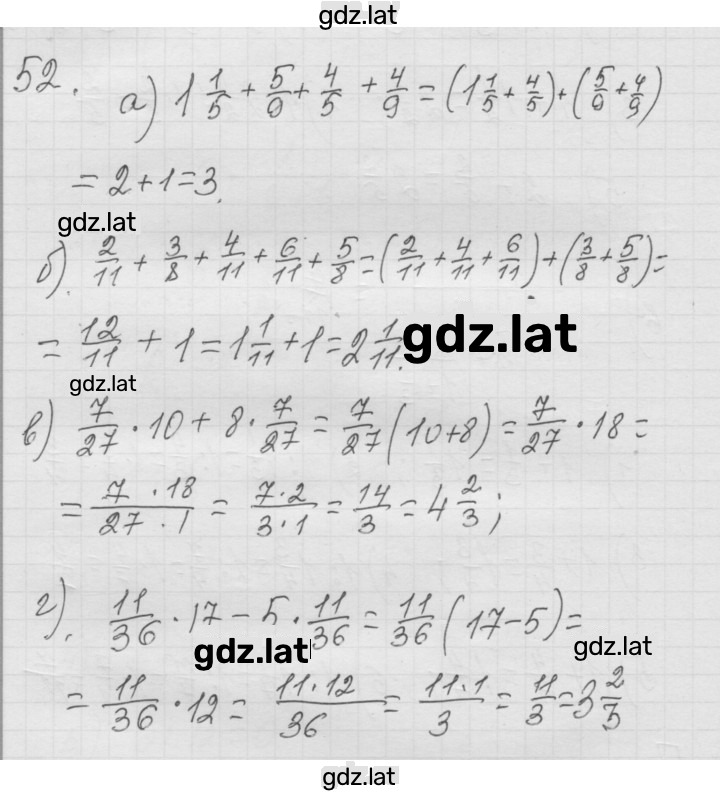 gdz.lat
52.
а) 1 1/5 + 5/9 + 4/5 + 4/9 = (1 1/5 + 4/5) + (5/9 + 4/9)
= 2 + 1 = 3.
gdz.lat
б) 2/11 + 3/8 + 4/11 + 6/11 + 5/8 = (2/11 + 4/11 + 6/11) + (3/8 + 5/8) =
= 12/11 + 1 = 1 1/11 + 1 = 2 1/11.
gdz.lat
gdz.lat
в) 7/27 · 10 + 8 · 7/27 = 7/27 (10+8) = 7/27 · 18 =
= 7 · 18/27 · 1 = 7·2/3·1 = 14/3 = 4 2/3;
г). 11/36 · 17 - 5 · 11/36 = 11/36 (17-5) =
gdz.lat
gdz.lat
= 11/36 · 12 = 11·12/36 = 11·1/3 = 11/3 = 3 2/3
gdz.lat